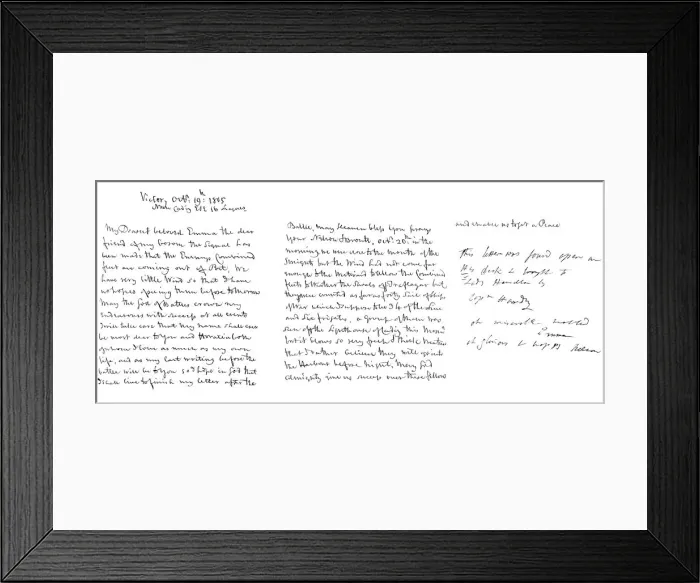 Victory, Octr. 19th: 1805
Noon Cadiz ESE 16 Leagues
My Dearest beloved Emma the dear
friend of my bosom the signal has
been made that the Enemys Combined
fleet are coming out of Port, We
have very little Wind so that I have
no hopes of seeing them before tomorrow
May the God of Battles crown my
Endeavours with success at all events
I will take care that my name shall ever
be most dear to you and Horatia both
of whom I love as much as my own
life, and as my last writing before the
battle will be to you so I hope in God that
I shall live to finish my letter after the
Battle, may Heaven bless you prays
your Nelson & Bronte, Octr. 20th: in the
morning we were close to the mouth of the
Streights but the Wind had not come far
enough to the Westward to allow the Combined
fleets to weather the shoals of Traflagar but
they were counted as far as forty Sail of Ships
of War which I suppose to be 34 of the Line
and six frigates, a group of them was
seen off the Lighthouse of Cadiz this Morng
but it blows so very fresh & thick weather
that I rather believe they will go into
the Harbour before night, May God
Almighty give us success over these fellows
and enable us to get a Peace
This letter was found open on
His Desk & brought to
Lady Hamilton by
Capn Hardy
oh miserable wretched
Emma
oh glorious & happy Nelson